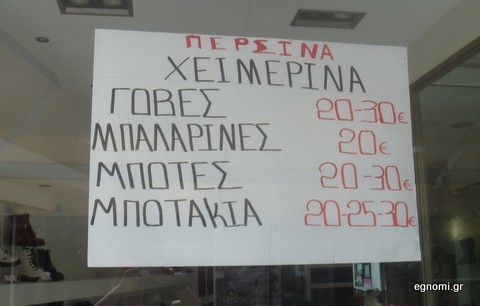 ΠΕΡΣΙΝΑ
ΧΕΙΜΕΡΙΝΑ
ΓΟΒΕΣ 20-30€
ΜΠΑΛΑΡΙΝΕΣ 20€
ΜΠΟΤΕΣ 20-30€
ΜΠΟΤΑΚΙΑ 20-25-30€
egnomi.gr